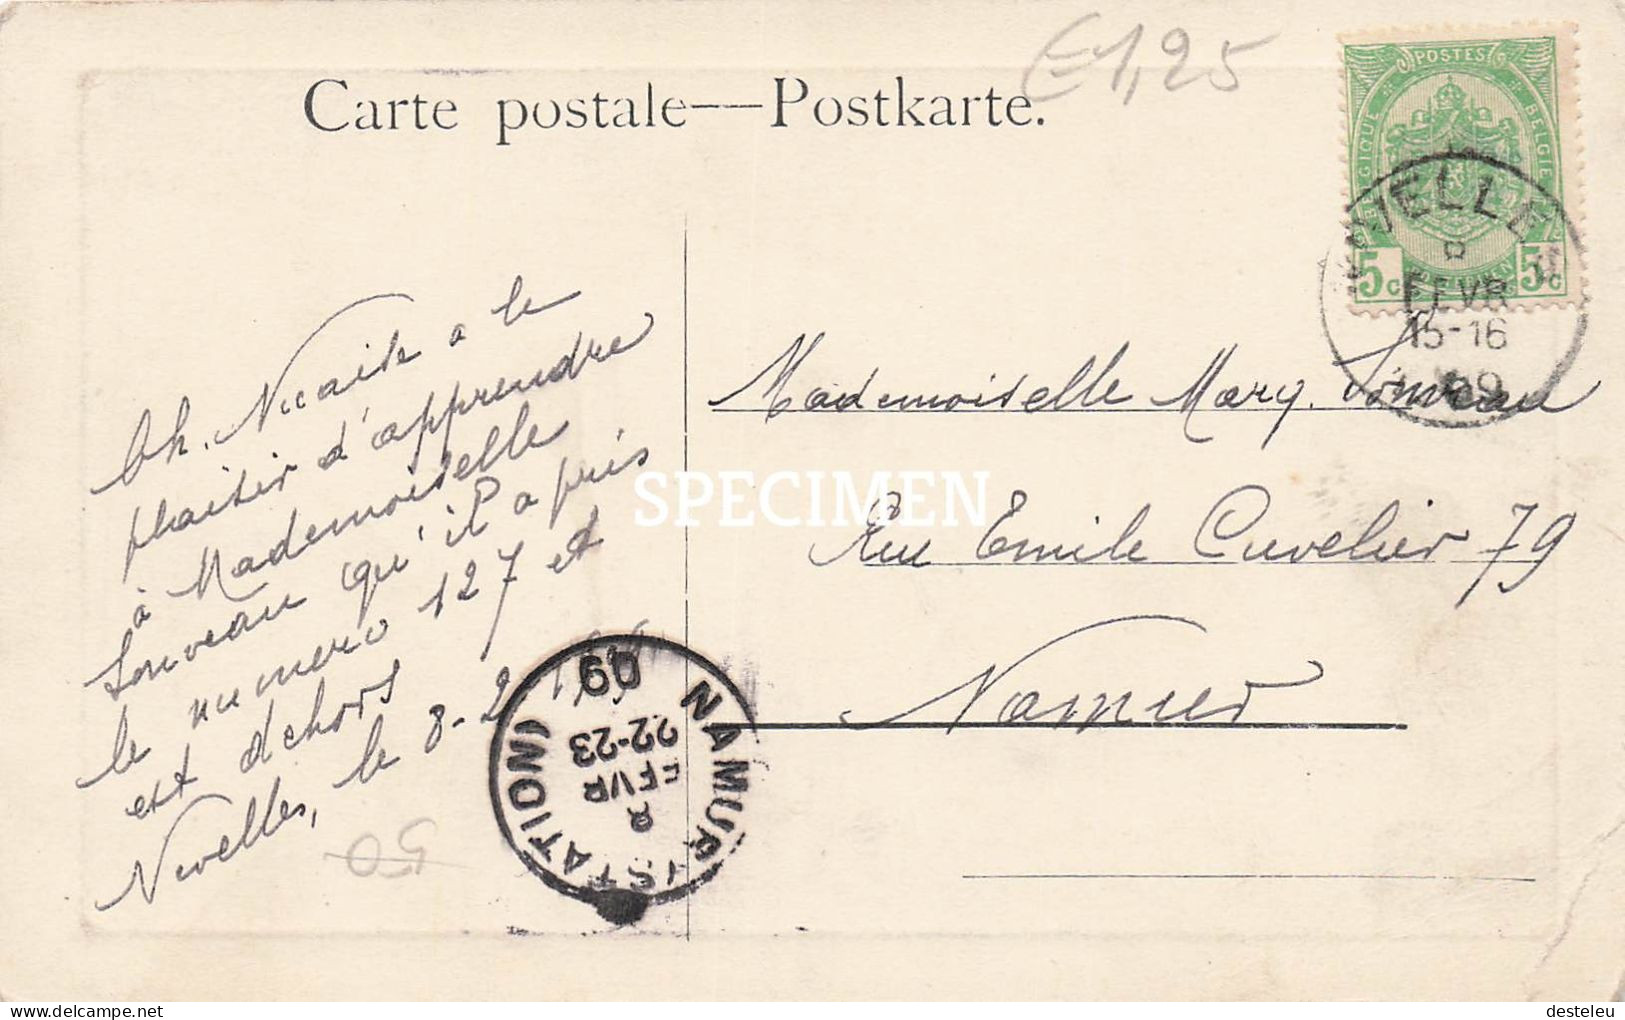 Carte postale—Postkarte.
€1,25
POSTES
BELGIQUE
BELGIE
5c
5c
NIVELLES
8
FEVR
15-16
09
Ch. Nicaise a le
plaisir d'apprendre
à Mademoiselle
Souveau qu'il a pris
le numero 127 et
est dehors
Nivelles, le 8-2
50
NAMUR (STATION)
8
FEVR
22-23
09
Mademoiselle Mary. Souveau
Rue Emile Cuvelier 79
Namur
SPECIMEN
delcampe.net
desteleu